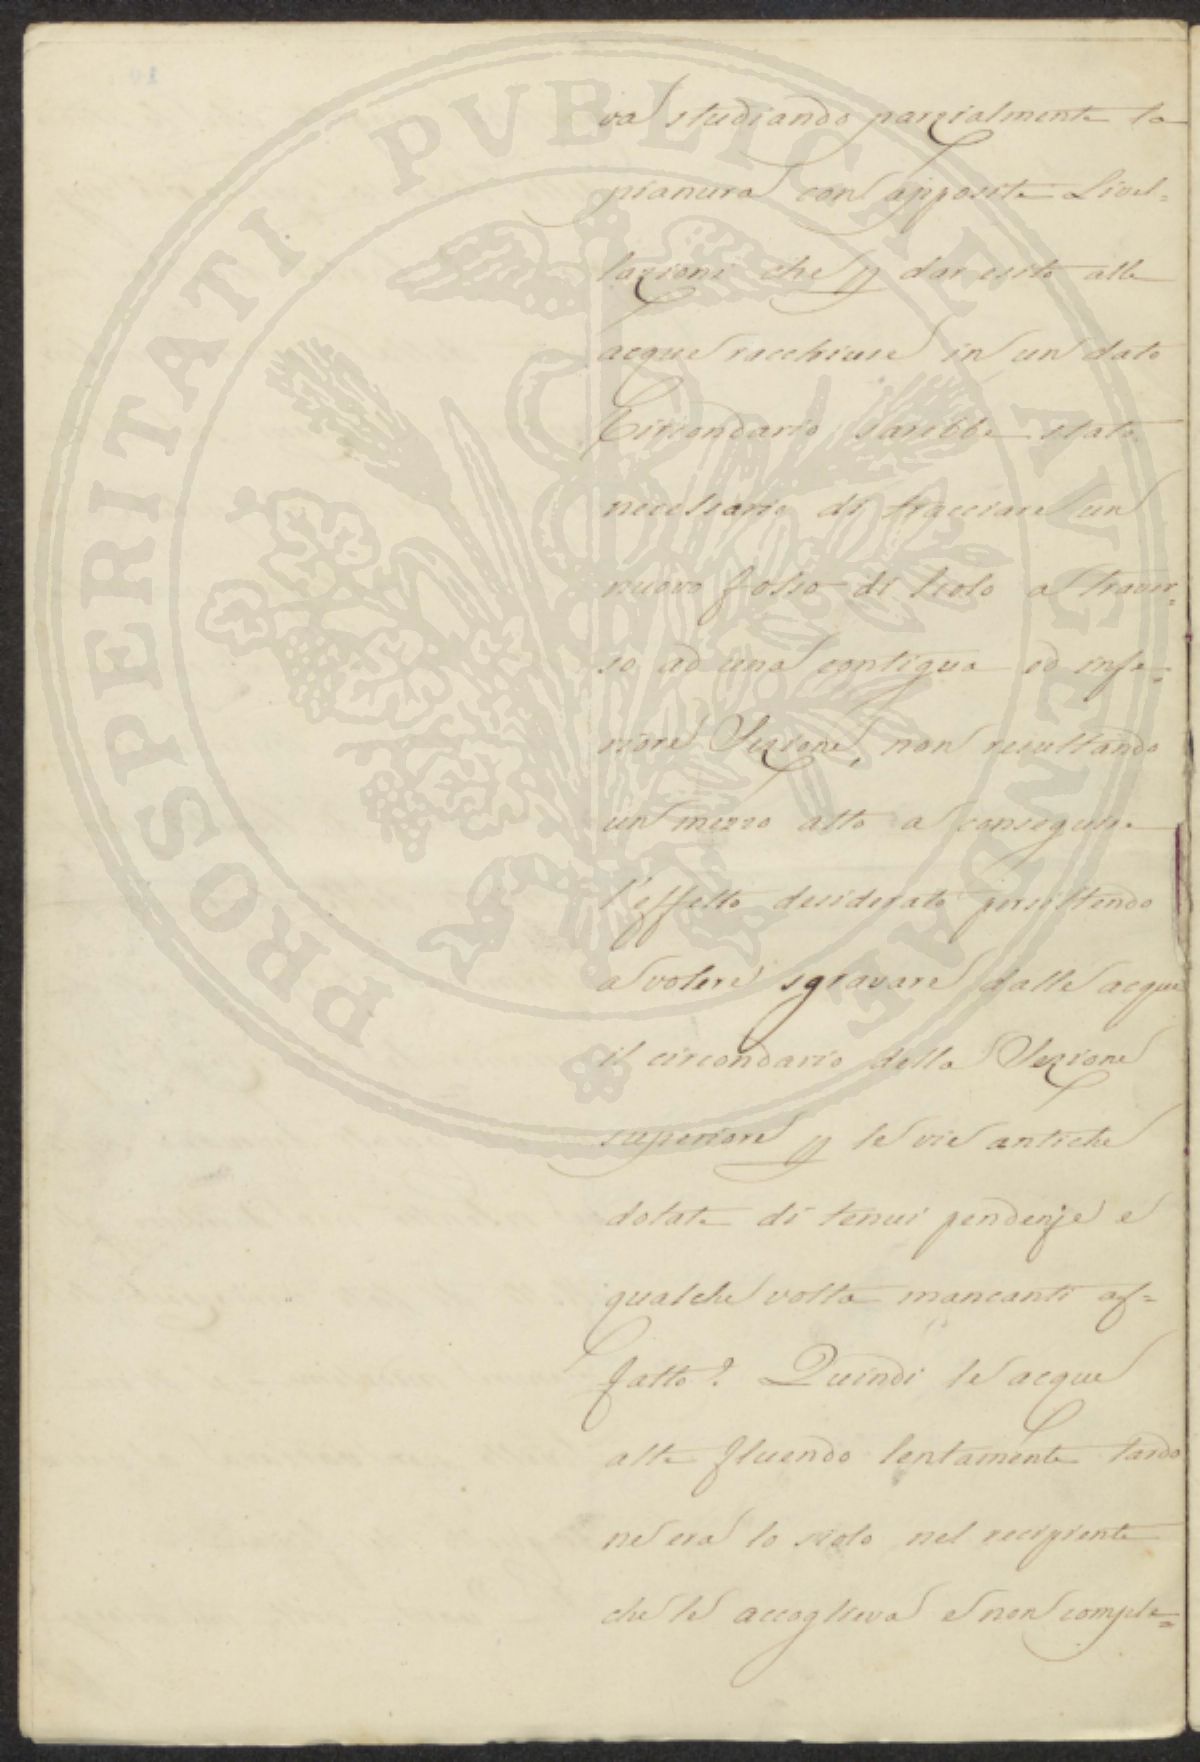 va studiando parzialmente la
pianura con apposite Livel=
lazioni che p dar esito alle
acque racchiuse in un dato
Circondario sarebbe stato
necessario di tracciare un
nuovo fosso di scolo a traver=
so ad una contigua ed infe=
riore Sezione, non resultando
un mezzo atto a conseguire
l'effetto desiderato persistendo
a volere sgravare dalle acque
il circondario della Sezione
superiore p le vie antiche
dotate di tenui pendenze e
qualche volta mancanti af=
fatto? Quindi le acque
alte fluendo lentamente tardo
ne era lo scolo nel recipiente
che le accoglieva e non comple=
PROSPERITATI PVBLICAE AVGENDAE